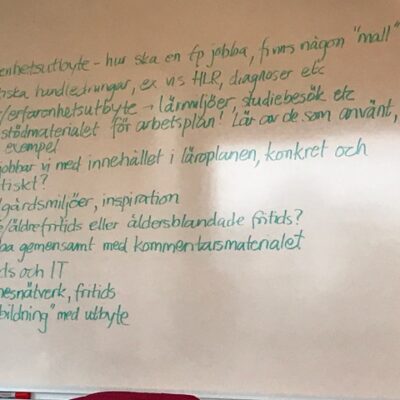 enhetsutbyte - hur ska en fp jobba, finns någon "mall"
iska handledningar, ex vis HLR, diagnoser etc
/erfarenhetsutbyte → lärmiljöer, studiebesök etc
stödmaterialet för arbetsplan! Lär av de som använt,
exempel
jobbar vi med innehållet i läroplanen, konkret och
tiskt?
gårdsmiljöer, inspiration
/äldrefritids eller åldersblandade fritids?
ba gemensamt med kommentarsmaterialet
ds och IT
nesnätverk, fritids
bildning" med utbyte